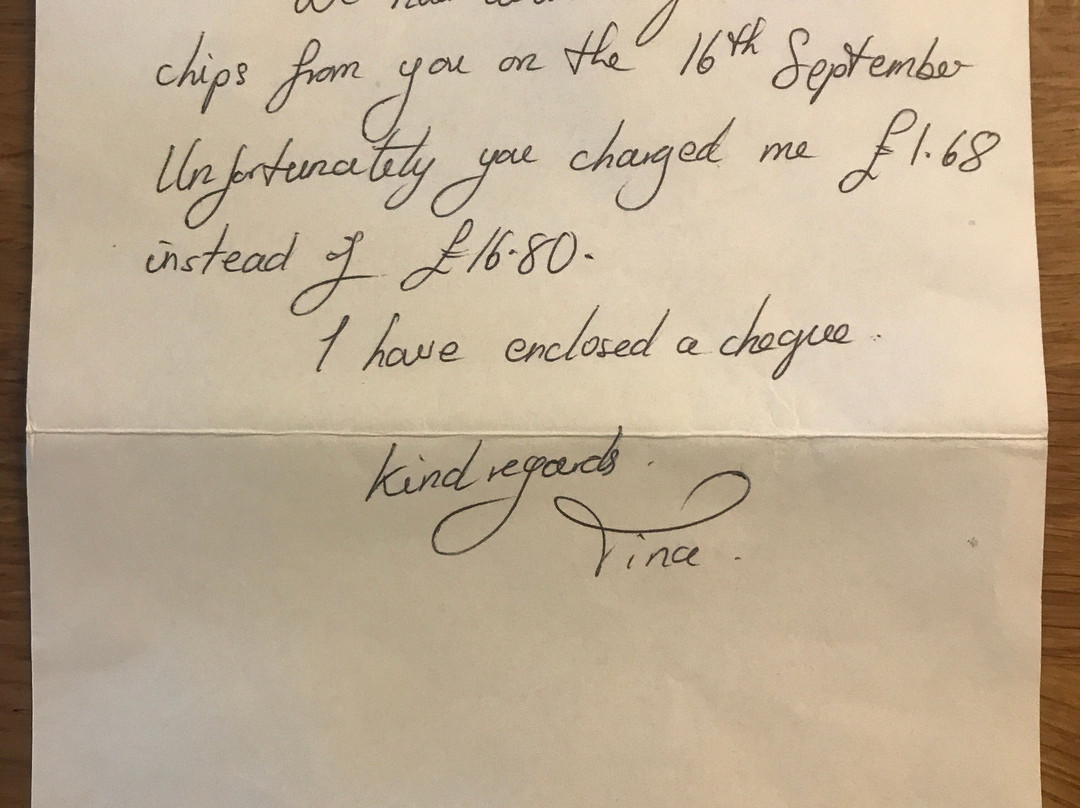 chips from you on the 16th September
Unfortunately you charged me £1.68
instead of £16.80.
I have enclosed a cheque.
Kind regards.
Tina.